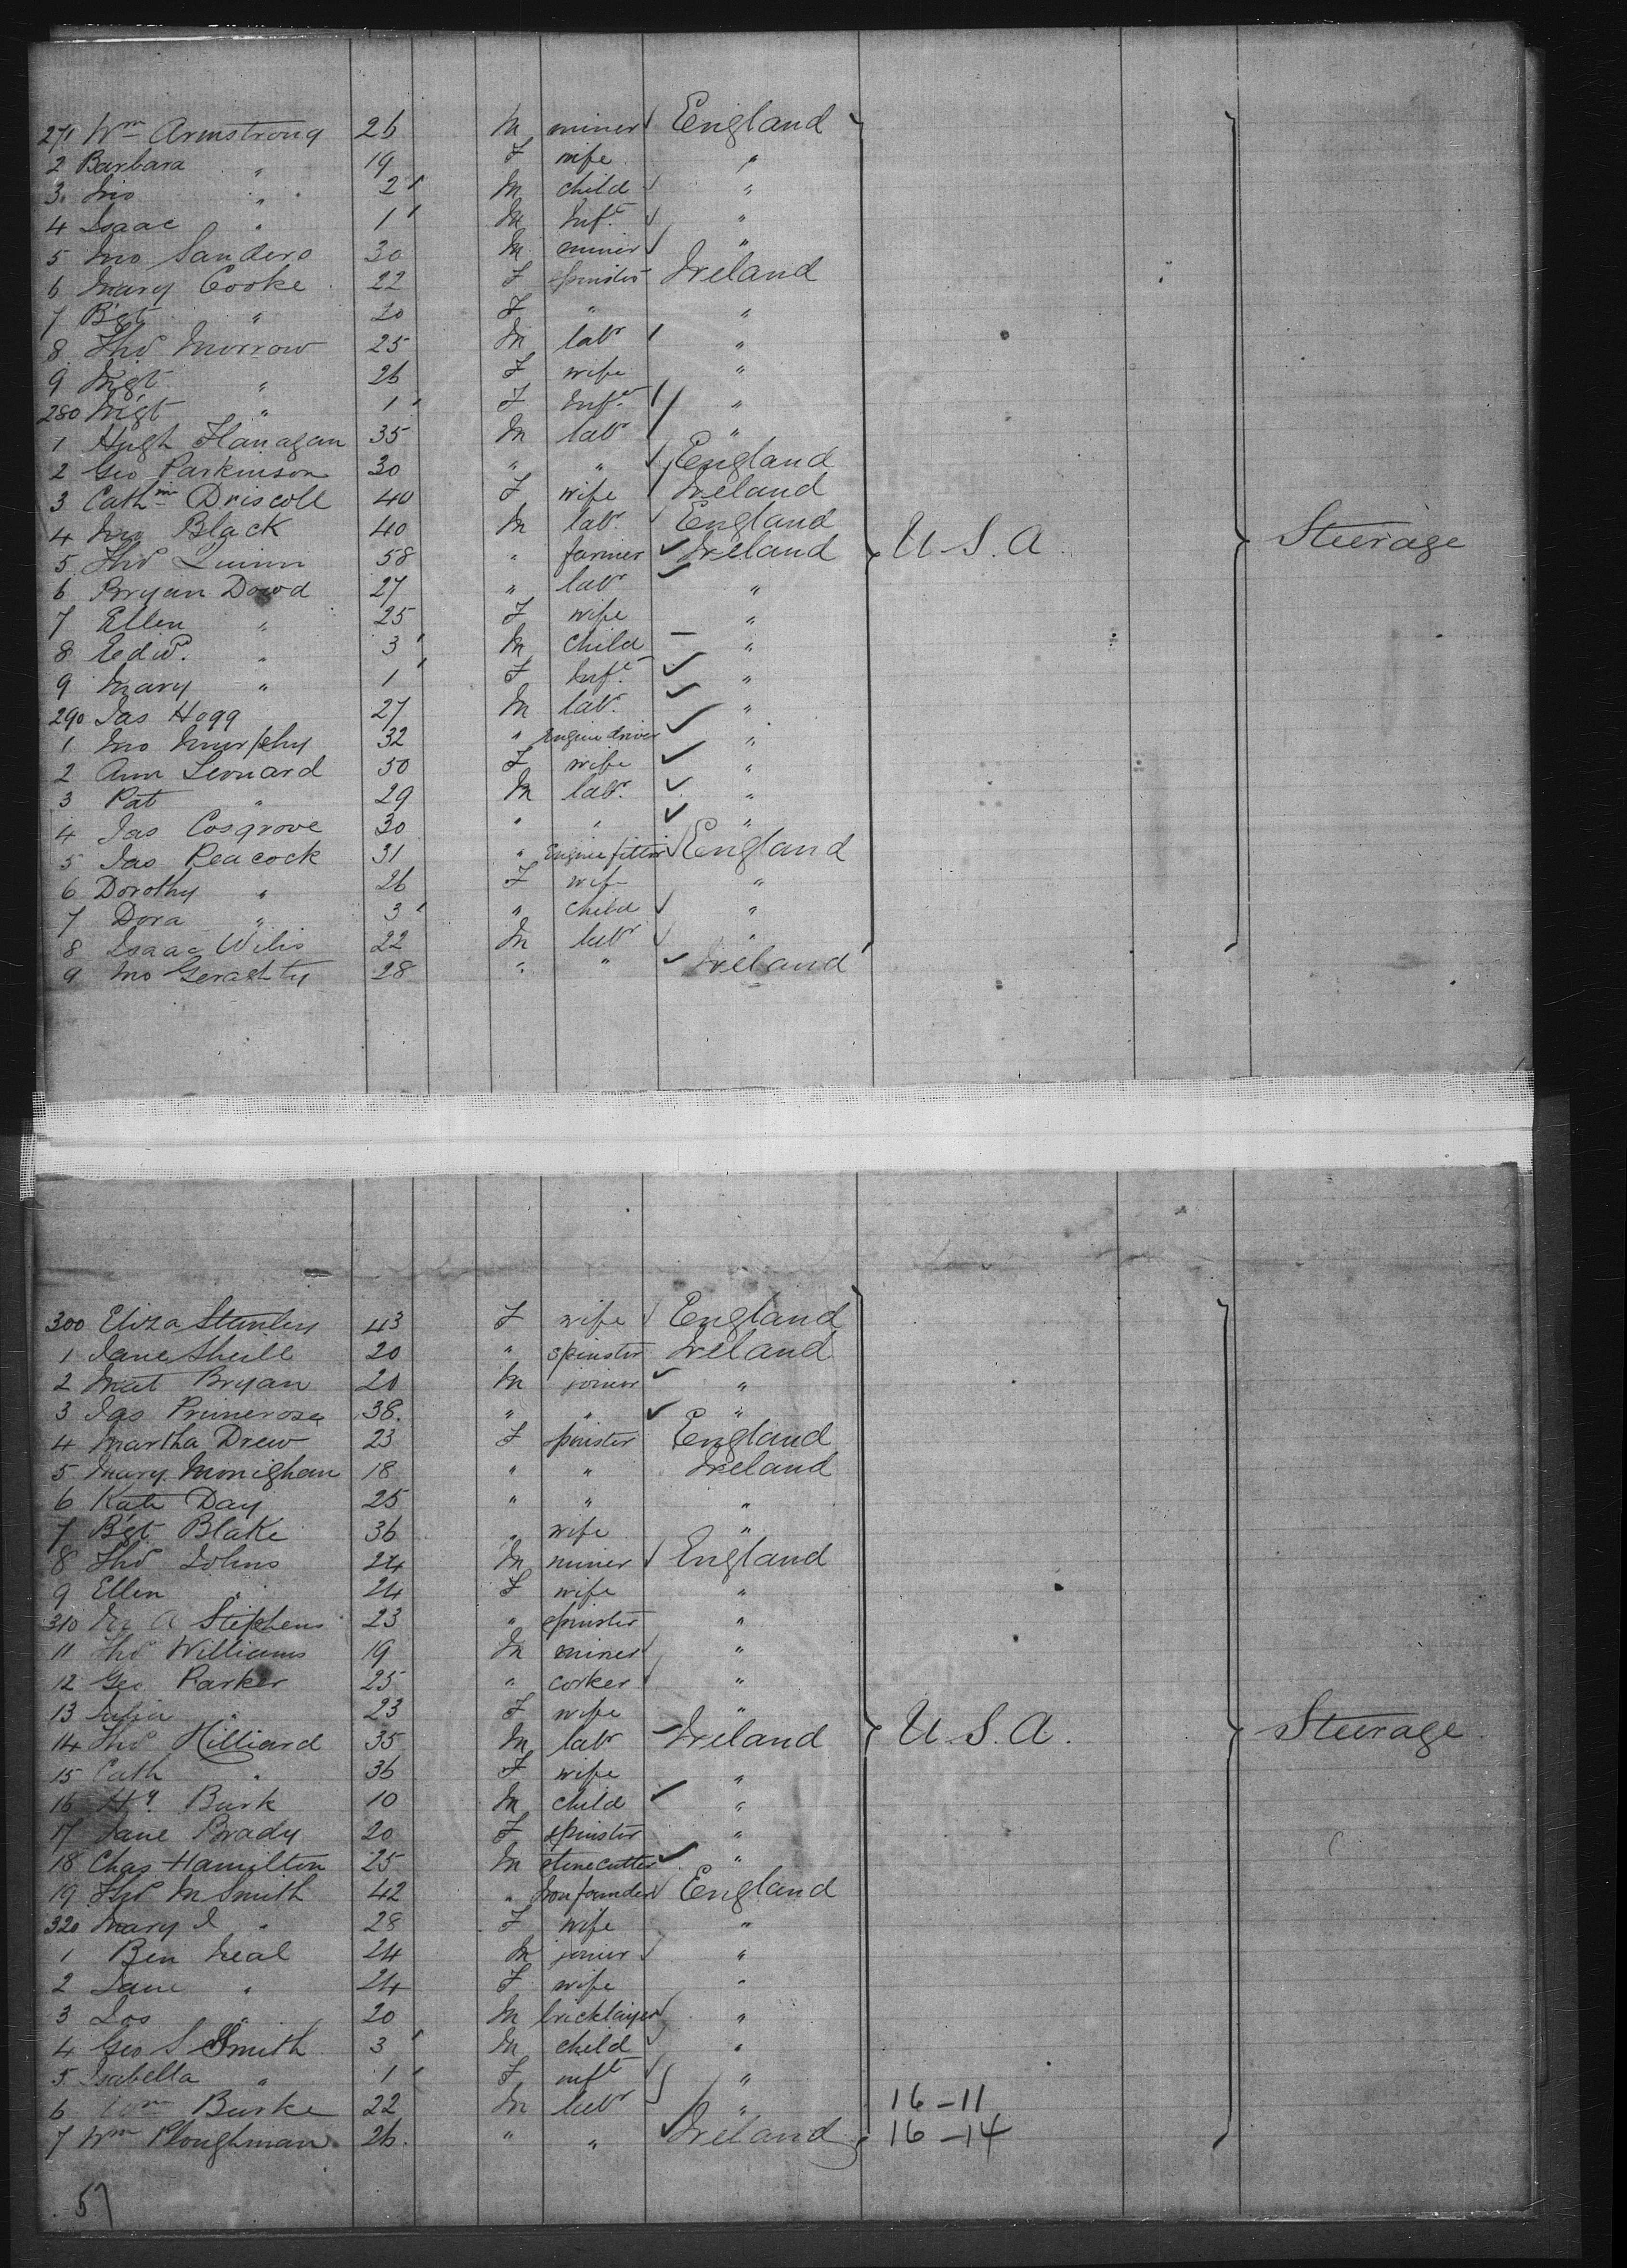 271 Wm Armstrong 26 M miner England
2 Barbara " 19 F wife "
3. Jno " 2 M child "
4 Isaac " 1 M Inft "
5 Jno Sanders 30 M miner "
6 Mary Cooke 22 F spinster Ireland
7 Bgt " 20 F " "
8 Thos Morrow 25 M labr "
9 Mgt " 26 F wife "
280 Mgt " 1 F Inft "
1 Hugh Flanagan 35 M labr "
2 Geo Parkinson 30 " " England
3 Cathne Driscoll 40 F wife Ireland
4 Jno Black 40 M labr England
5 Thos Quinn 58 " farmer Ireland U.S.A. Steerage
6 Bryan Dowd 27 " labr "
7 Ellen " 25 F wife "
8 Edwd. " 3 M child "
9 Mary " 1 F Inft "
290 Jas Hogg 27 M labr "
1 Jno Murphy 32 " Engine driver "
2 Ann Leonard 50 F wife "
3 Pat " 29 M labr. "
4 Jas Cosgrove 30 " " "
5 Jas Peacock 31 " Engine fitter England
6 Dorothy " 26 F wife "
7 Dora " 3 " child "
8 Isaac Wilis 22 M labr "
9 Jno Geraghty 28 " " Ireland
300 Eliza Stanley 43 F wife England
1 Jane Sheill 20 " spinster Ireland
2 Mat Bryan 20 M joiner "
3 Jas Primerose 38. " " "
4 Martha Drew 23 F spinster England
5 Mary Monighan 18 " " Ireland
6 Kate Day 25 " " "
7 Bgt Blake 36 " wife "
8 Thos Johns 24 M miner England
9 Ellen " 24 F wife "
310 A Stephens 23 " spinster "
11 Thos Williams 19 M miner "
12 Geo Parker 25 " corker "
13 Julia " 23 F wife "
14 Thos Hilliard 35 M labr Ireland U.S.A. Steerage
15 Cath " 36 F wife "
16 Hy Burk 10 M child "
17 Jane Brady 20 F spinster "
18 Chas Hamilton 25 M stonecutter "
19 Thos M Smith 42 " Iron founder England
320 Mary J " 28 F wife "
1 Ben Neal 24 M joiner "
2 Jane " 24 F wife "
3 Jos " 20 M bricklayer "
4 Geo S Smith 3 M child "
5 Isabella " 1 F inft "
6 Wm Burke 22 M labr " 16-11
7 Wm Ploughman 26. " " Ireland 16-14
57